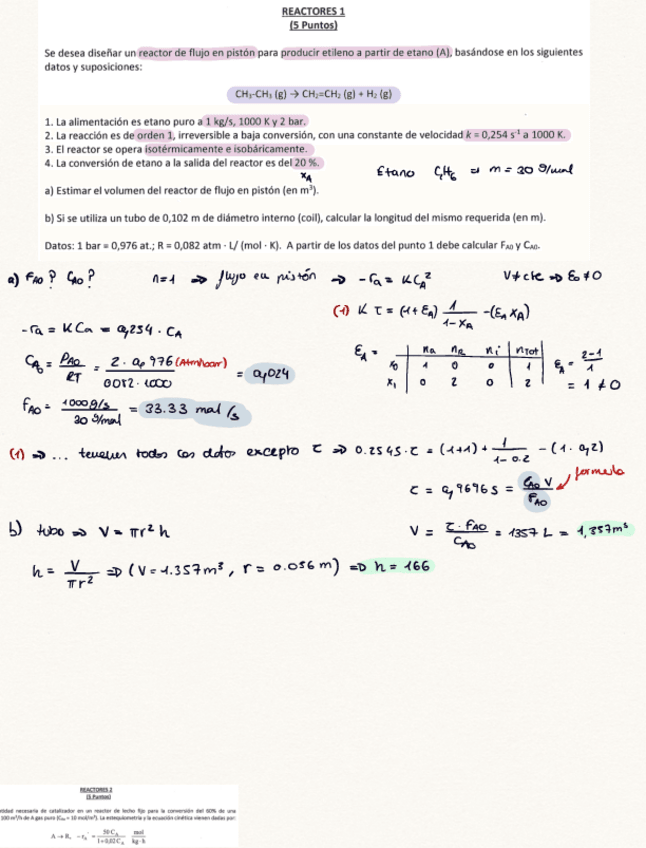 REACTORES 1
(5 Puntos)
Se desea diseñar un reactor de flujo en pistón para producir etileno a partir de etano (A), basándose en los siguientes
datos y suposiciones:
CH₃-CH₃ (g) → CH₂=CH₂ (g) + H₂ (g)
1. La alimentación es etano puro a 1 kg/s, 1000 K y 2 bar.
2. La reacción es de orden 1, irreversible a baja conversión, con una constante de velocidad k = 0,254 s⁻¹ a 1000 K.
3. El reactor se opera isotérmicamente e isobáricamente.
4. La conversión de etano a la salida del reactor es del 20 %.
x_A
Etano C₂H₆ ⇒ m = 30 g/mol
a) Estimar el volumen del reactor de flujo en pistón (en m³).
b) Si se utiliza un tubo de 0,102 m de diámetro interno (coil), calcular la longitud del mismo requerida (en m).
Datos: 1 bar = 0,976 at.; R = 0,082 atm · L/ (mol · K). A partir de los datos del punto 1 debe calcular F_A0 y C_A0.
a) F_A0? C_A0? n=1 ⇒ flujo en pistón ⇒ -ra = K C_A² V≠cte ⇒ ε₀ ≠ 0
(1) K τ = (1+ε_A) 1/(1-x_A) -(ε_A x_A)
-ra = K Ca = 0,254 · C_A
ε_A = n_a n_R n_i n_TOT
x₀ 1 0 0 1
x₁ 0 2 0 2
ε_A = (2-1)/1
= 1 ≠ 0
C_A0 = P_A0/RT = 2 · 0,976 (Atm/bar)/0.082 · 1000 = 0,024
F_A0 = 1000 g/s / 30 g/mol = 33.33 mol/s
(1) ⇒ ... tenemos todos los datos excepto τ ⇒ 0.254 s · τ = (1+1) + 1/(1-0.2) - (1 · 0,2)
τ = 0,9696 s = C_A0 V/F_A0
formula
b) tubo ⇒ V = πr² h
V = τ · F_A0/C_A0 = 1357 L = 1,357 m³
h = V/πr² ⇒ (V = 1.357 m³, r = 0.056 m) ⇒ h = 166
REACTORES 2
(5 Puntos)
tidad necesaria de catalizador en un reactor de lecho fijo para la conversión del 60% de una
100 m³/h de A gas puro (C_A0 = 10 mol/m³). La estequiometría y la ecuación cinética vienen dadas por:
A → R, -r_A' = 50 C_A/(1+0,02 C_A) mol/(kg·h)